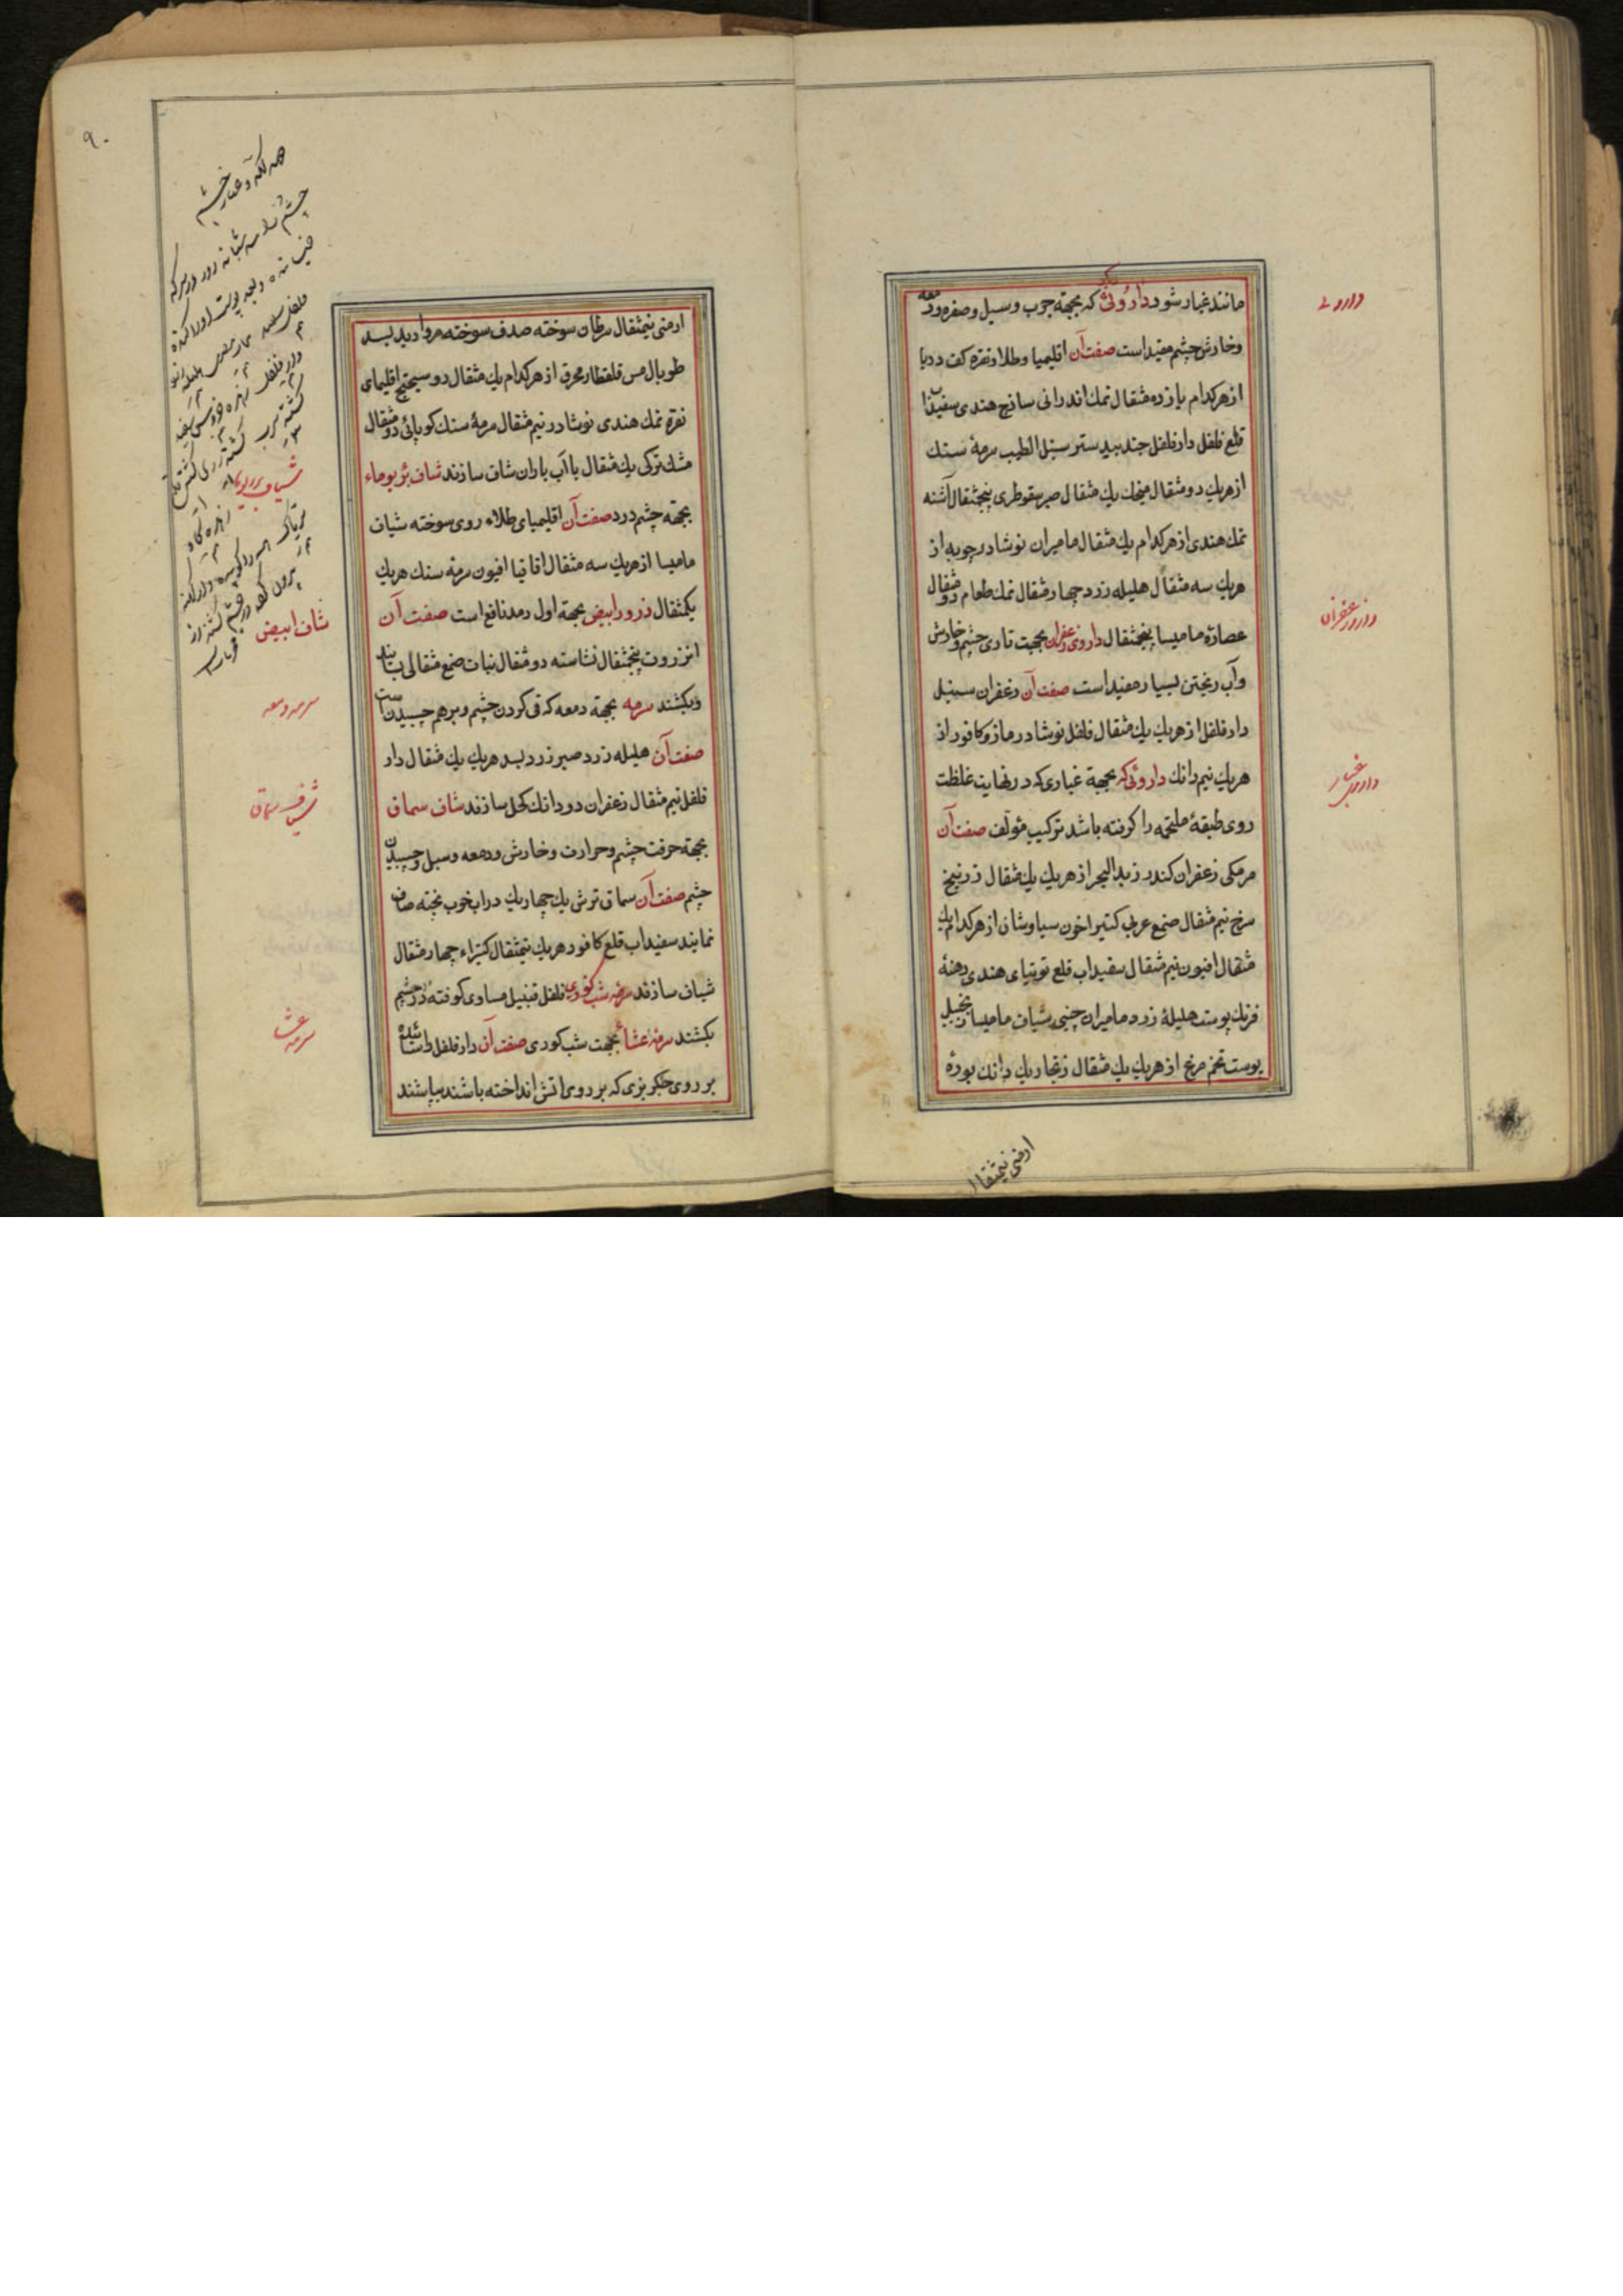 مانند غبار شود داروئی که بجهة جرب وسبل وصفره ودمعه
وخارش چشم مفید است صفت آن اقلیمیا وطلا ونقره کف دریا
از هر کدام یازده مثقال نمک اندرانی ساذج هندی سفیداب
قلع فلفل دارفلفل جند بیدستر سنبل الطیب سرمهٔ سنک
از هریك دو مثقال میخک یك مثقال صبر سقوطری پنجمثقال آشنه
نمک هندی از هر کدام یك مثقال مامیران نوشادر چوبه از
هریك سه مثقال هلیله زرد چهار مثقال نمک طعام دو مثقال
عصارهٔ مامیسا پنجمثقال داروی زعفران بجهت تاری چشم وخارش
وآب ریختن بسیار مفید است صفت آن زعفران سنبل
دارفلفل از هریك یك مثقال فلفل نوشادر مازو کافور از
هریك نیم دانك داروئی که بجهة غباری که در نهایت غلظت
روی طبقهٔ ملتحمه را کرفته باشد ترکیب مؤلف صفت آن
مرمکی زعفران کندر زبد البحر از هریك یك مثقال زرنیخ
سرخ نیم مثقال صمغ عربی کتیرا خون سیاوشان از هر کدام یك
مثقال افیون نیم مثقال سفیداب قلع توتیای هندی دهنهٔ
فرنك پوست هلیلهٔ زرد مامیران چینی شیاف مامیسا زنجبیل
پوست تخم مرغ از هریك یك مثقال زنجار یك دانك بورهٔ
ارمنی نیمثقال
داروئی
دارو زعفران
داروی غبار
۹۰
ارمنی نیمثقال سرطان سوخته صدف سوخته مروارید بسد
طوبال مس قلقطار محرق از هر کدام یك مثقال دو سیحتج اقلیمای
نقره نمک هندی نوشادر نیم مثقال سرمهٔ سنك کوپائی دو مثقال
مشك ترکی یك مثقال با آب باران شاف سازند شاف بزبوماء
بجهة چشم درد صفت آن اقلیمیای طلاء روی سوخته شیاف
مامیسا از هریك سه مثقال اقاقیا افیون سرمهٔ سنك هریك
یکمثقال ذرور ابیض بجهة اول رمد نافع است صفت آن
انزروت پنجمثقال نشاسته دو مثقال نبات صمغ مثقالی بسایند
وبکشند سرمه بجهة دمعه که قی کردن چشم وبرهم چسبیدن است
صفت آن هلیله زرد صبر زرد بسد هریك یك مثقال دار
فلفل نیم مثقال زعفران دو دانك کحل سازند شاف سماق
بجهة حرقت چشم وحرارت وخارش ودمعه وسبل وچسبیدن
چشم صفت آن سماق ترش یك چهاریك در اب خوب پخته صاف
نمایند سفیداب قلع کافور هریك نیمثقال کتیراء چهار مثقال
شیاف سازند سرمه شب کوری فلفل قنبیل مساوی کوفته در چشم
بکشند سرمهٔ عشائی بجهت شب کوری صفت آن دارفلفل را سائیده
بر روی جکر بزی که بر روی اتش انداخته باشند بپاشند
شاف ابیض
سرمه دمعه
شیاف سماق
سرمه عشا